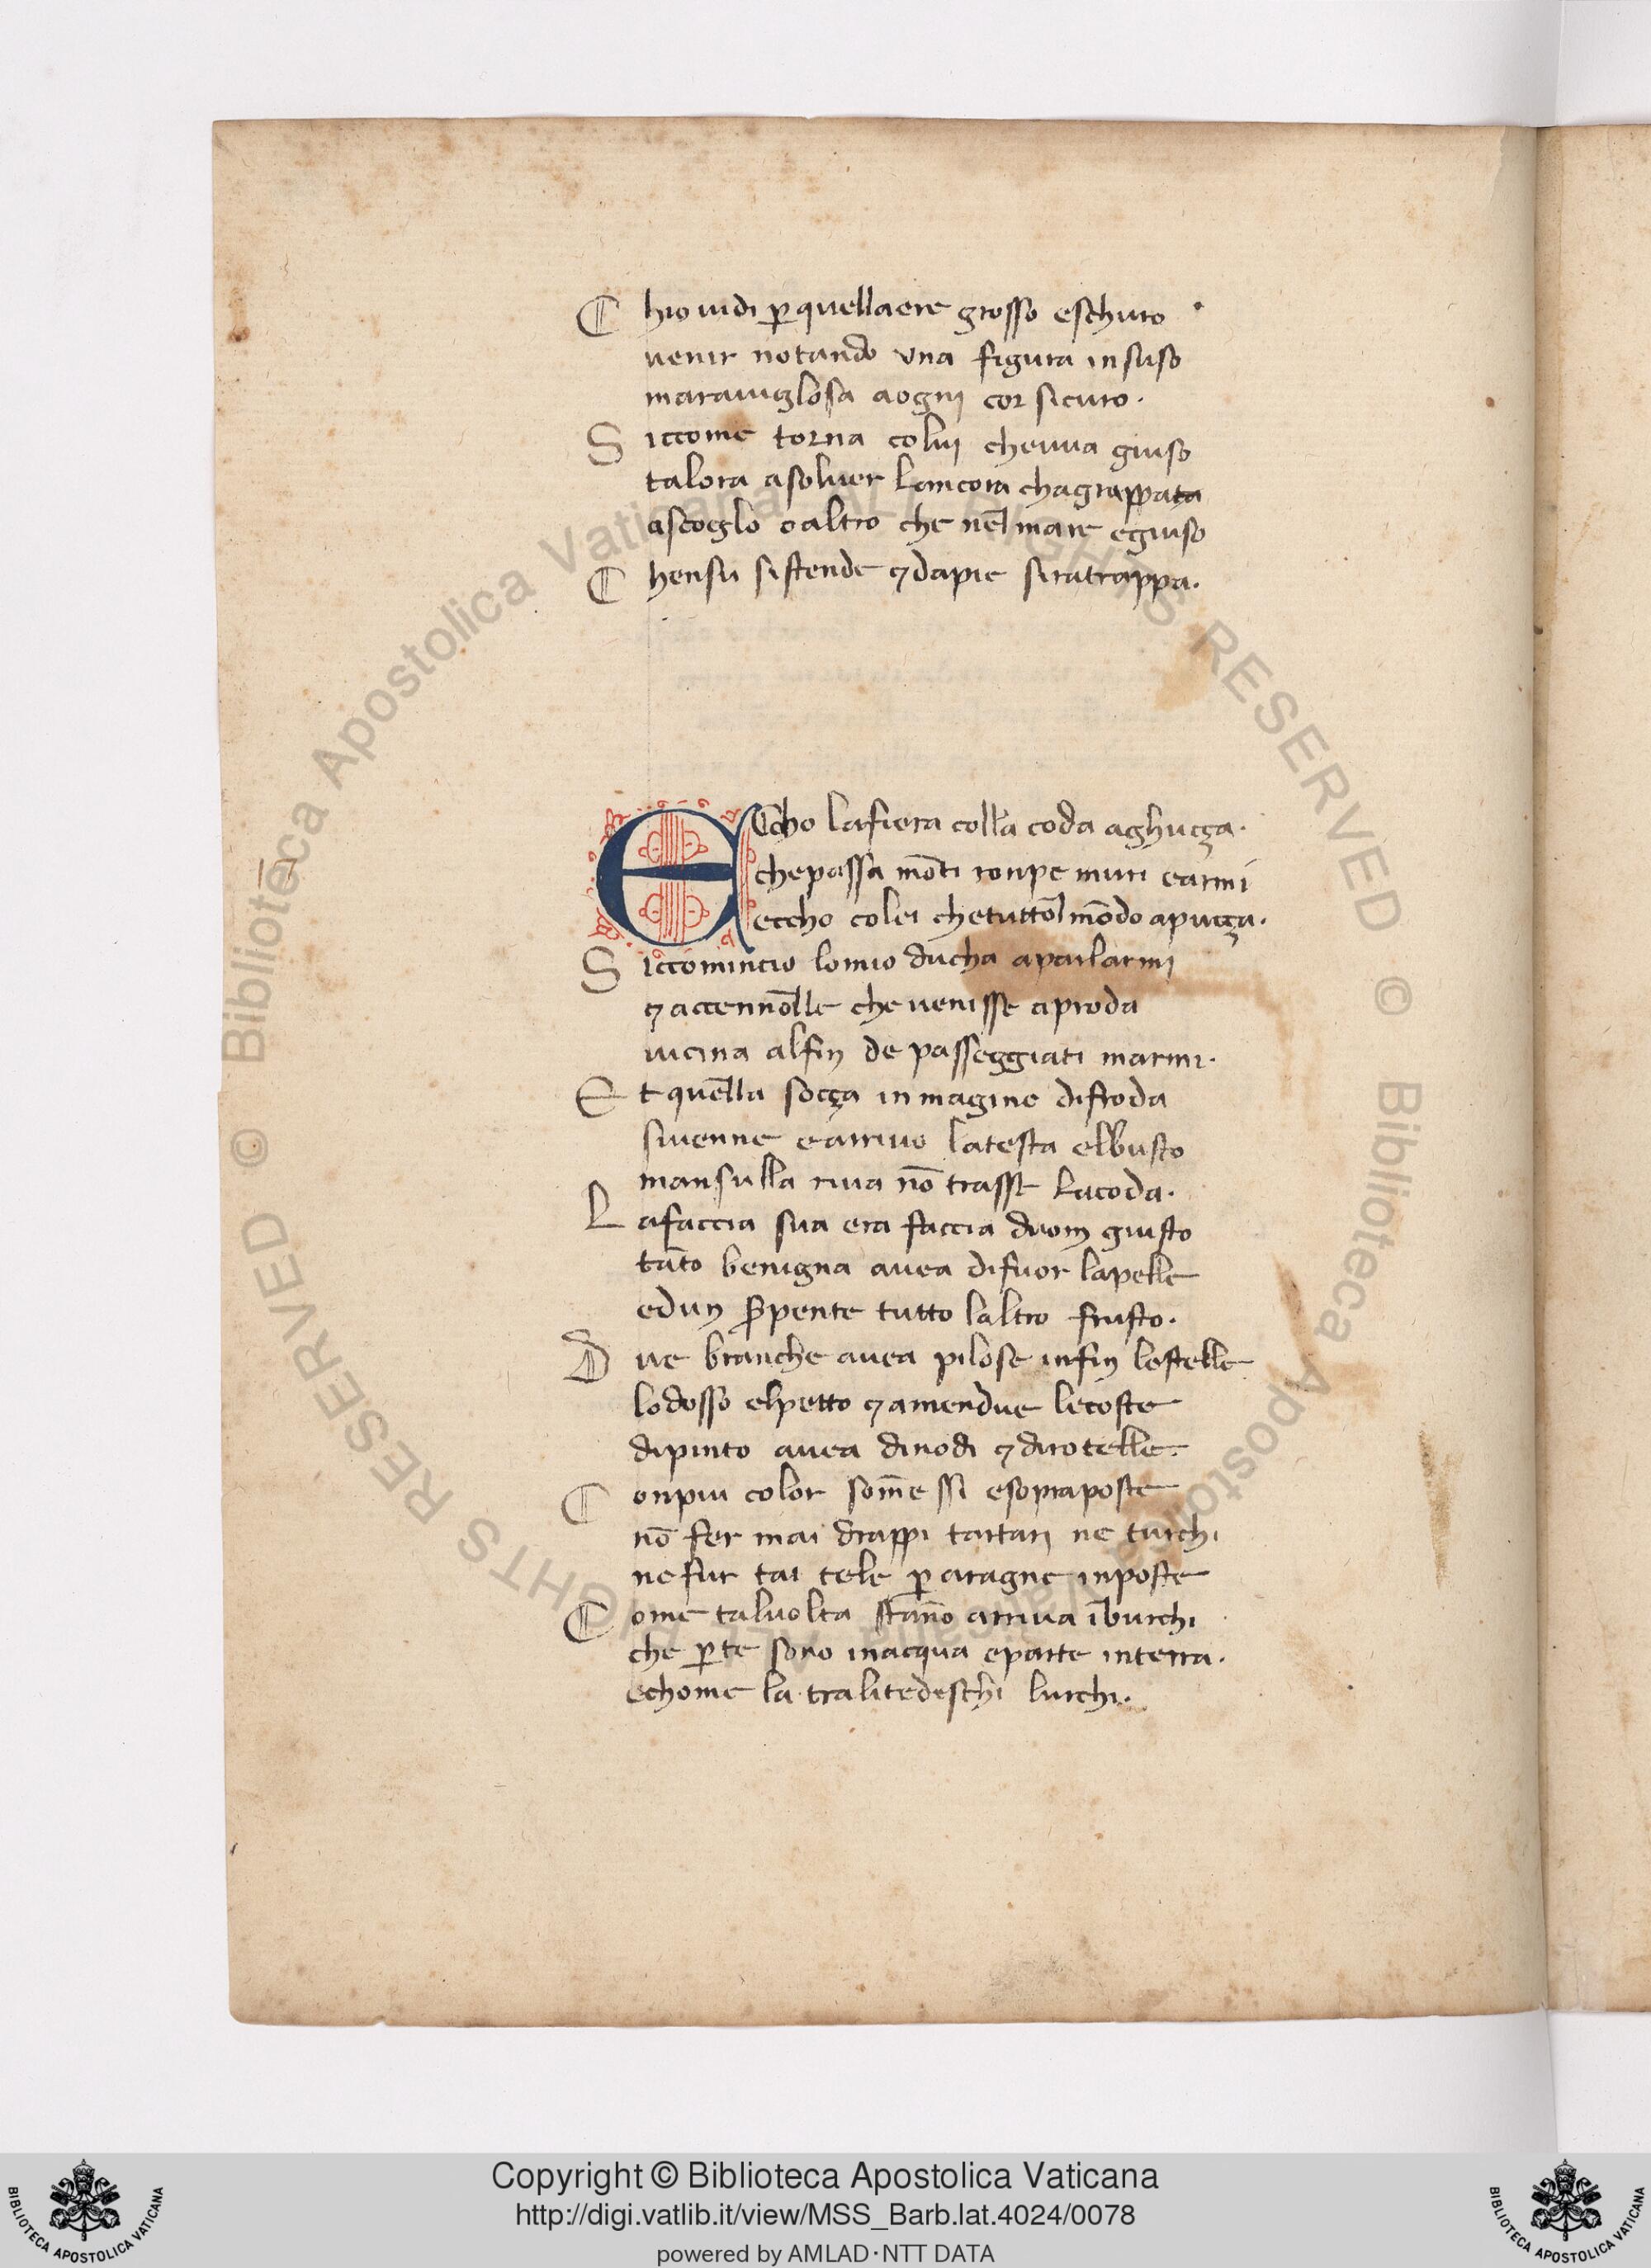 C hio uidi ꝑ quellaere grosso eschuro
uenir notando una figura in suso
marauiglosa aogni cor sicuro.
S iccome torna colui cheuua giuso
talora asoluer lancora chagrappata
ascoglo oaltro che nel mare egiuso
C hensu sistende ⁊ dapie siratrappa.
17
ECcho lafiera colla coda aghuçça.
chepassa mōti ronpe muri earmi
eccho colei chetuttol mōdo apuçça.
S iccomincio lomio ducha aparlarmi
⁊ accennolle che uenisse aproda
uicina alfin de passeggiati marmi.
E t quella soçça inmagine difroda
siuenne earriuo latesta elbusto
mansulla riua nō trasse lacoda.
L afaccia sua era faccia duom giusto
tāto benigna auea difuor lapelle
edun ꝑpente tutto laltro frusto.
D ue branche auea pilose infin lestelle
lodosso elpetto ⁊ amendue lecoste
dipinto auea dinodi ⁊ dirotelle.
C onpiu color som̄e ssi esopraposte
nō fer mai drappi tartari ne turchi
nefur tai tele ꝑ aragne inposte
C ome taluolta stāno arriua iburchi
che ꝑte sono inacqua eparte interra.
echome la tralitedeschi lurchi.
Copyright © Biblioteca Apostolica Vaticana
http://digi.vatlib.it/view/MSS_Barb.lat.4024/0078
powered by AMLAD·NTT DATA
BIBLIOTECA APOSTOLICA VATICANA
BIBLIOTECA APOSTOLICA VATICANA
© Biblioteca Apostolica Vaticana ALL RIGHTS RESERVED © Biblioteca Apostolica Vaticana ALL RIGHTS RESERVED